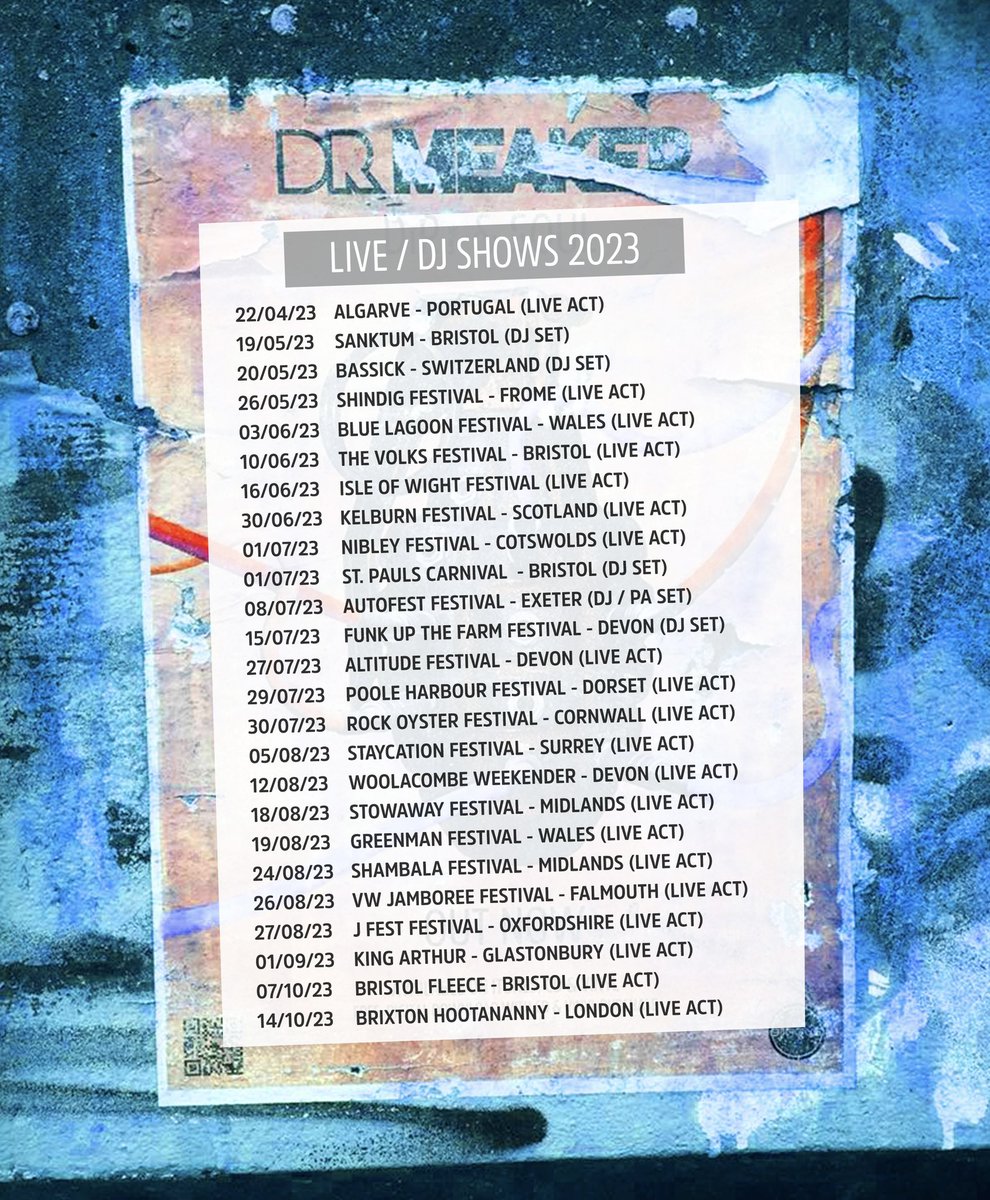 DR MEAKER
LIVE / DJ SHOWS 2023
22/04/23 ALGARVE - PORTUGAL (LIVE ACT)
19/05/23 SANKTUM - BRISTOL (DJ SET)
20/05/23 BASSICK - SWITZERLAND (DJ SET)
26/05/23 SHINDIG FESTIVAL - FROME (LIVE ACT)
03/06/23 BLUE LAGOON FESTIVAL - WALES (LIVE ACT)
10/06/23 THE VOLKS FESTIVAL - BRISTOL (LIVE ACT)
16/06/23 ISLE OF WIGHT FESTIVAL (LIVE ACT)
30/06/23 KELBURN FESTIVAL - SCOTLAND (LIVE ACT)
01/07/23 NIBLEY FESTIVAL - COTSWOLDS (LIVE ACT)
01/07/23 ST. PAULS CARNIVAL - BRISTOL (DJ SET)
08/07/23 AUTOFEST FESTIVAL - EXETER (DJ / PA SET)
15/07/23 FUNK UP THE FARM FESTIVAL - DEVON (DJ SET)
27/07/23 ALTITUDE FESTIVAL - DEVON (LIVE ACT)
29/07/23 POOLE HARBOUR FESTIVAL - DORSET (LIVE ACT)
30/07/23 ROCK OYSTER FESTIVAL - CORNWALL (LIVE ACT)
05/08/23 STAYCATION FESTIVAL - SURREY (LIVE ACT)
12/08/23 WOOLACOMBE WEEKENDER - DEVON (LIVE ACT)
18/08/23 STOWAWAY FESTIVAL - MIDLANDS (LIVE ACT)
19/08/23 GREENMAN FESTIVAL - WALES (LIVE ACT)
24/08/23 SHAMBALA FESTIVAL - MIDLANDS (LIVE ACT)
26/08/23 VW JAMBOREE FESTIVAL - FALMOUTH (LIVE ACT)
27/08/23 J FEST FESTIVAL - OXFORDSHIRE (LIVE ACT)
01/09/23 KING ARTHUR - GLASTONBURY (LIVE ACT)
07/10/23 BRISTOL FLEECE - BRISTOL (LIVE ACT)
14/10/23 BRIXTON HOOTANANNY - LONDON (LIVE ACT)